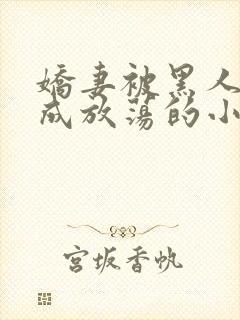 嬌妻被黑人
成放蕩的小
宮坂香帆